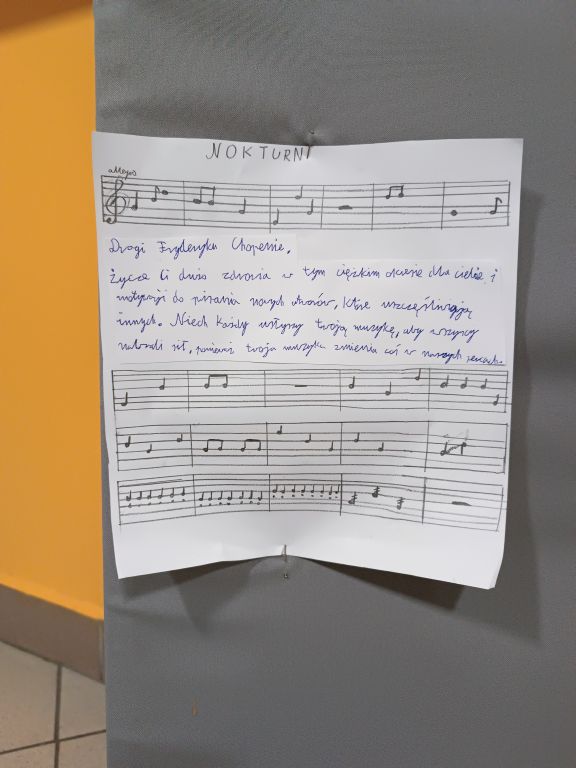 NOKTURN
allegro
Drogi Fryderyku Chopenie,
Życzę Ci dużo zdrowia w tym ciężkim okresie dla ciebie i
motywacji do pisania nowych utworów, które uszczęśliwiają
innych. Niech każdy usłyszy twoją muzykę, aby wszyscy
nabrali sił, ponieważ twoja muzyka zmienia coś w naszych sercach.